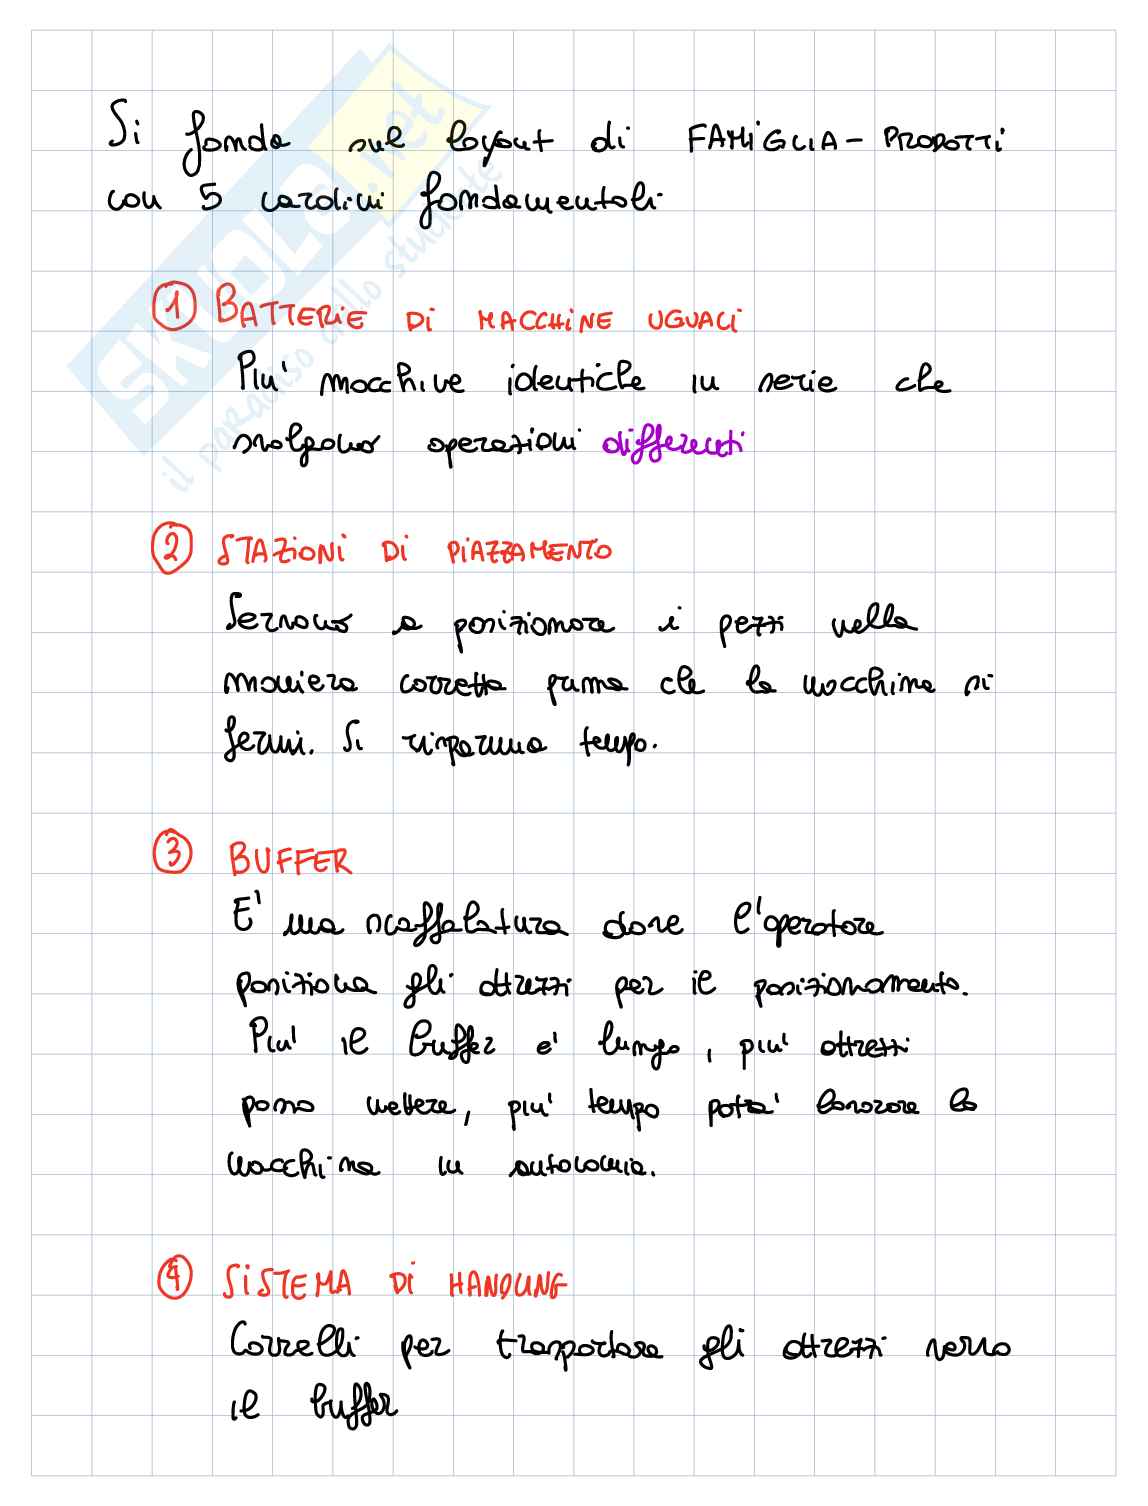 Si fonda sul layout di FAMIGLIA - PRODOTTI
con 5 cardini fondamentali
① BATTERIE DI MACCHINE UGUALI
Piu' macchine identiche in serie che
svolgono operazioni differenti
② STAZIONI DI PIAZZAMENTO
Servono a posizionare i pezzi nella
maniera corretta prima che la macchina si
fermi. Si risparmia tempo.
③ BUFFER
E' una scaffalatura dove l'operatore
posiziona gli attrezzi per il posizionamento.
Piu' il buffer e' lungo, piu' attrezzi
posso mettere, piu' tempo potra' lavorare la
macchina in autonomia.
④ SISTEMA DI HANDLING
Carrelli per trasportare gli attrezzi verso
il buffer
SKUOLA.net
il paradiso dello studente